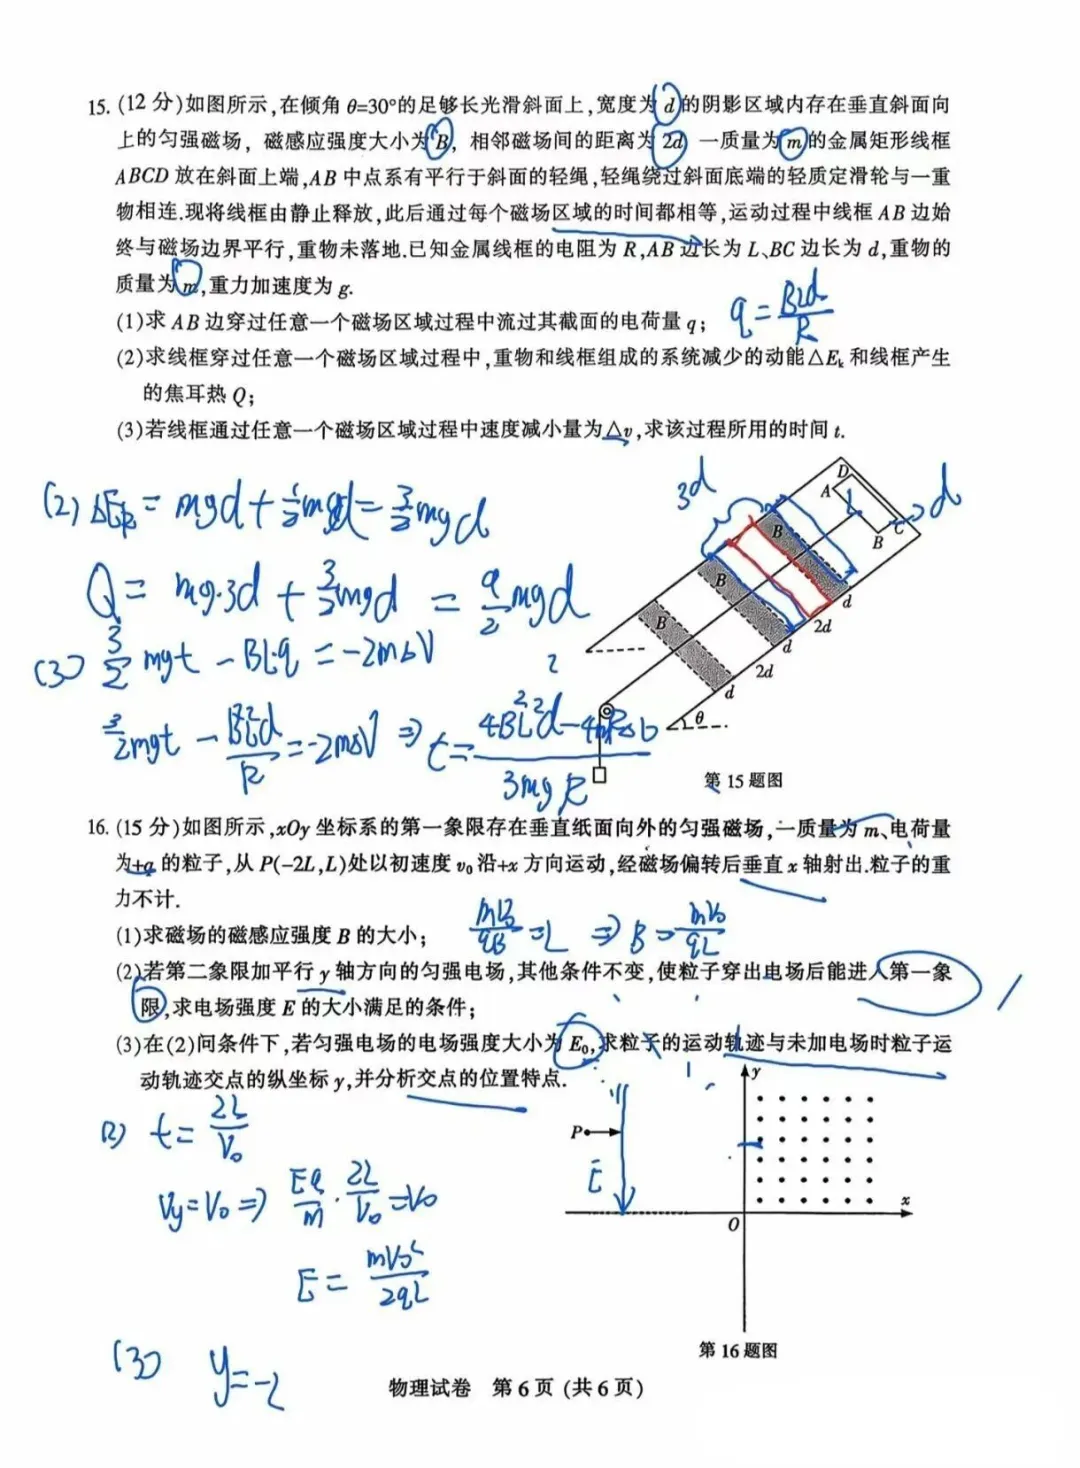 15. (12 分)如图所示,在倾角 θ=30°的足够长光滑斜面上,宽度为 d 的阴影区域内存在垂直斜面向
上的匀强磁场，磁感应强度大小为 B，相邻磁场间的距离为 2d 一质量为 m 的金属矩形线框
ABCD 放在斜面上端,AB 中点系有平行于斜面的轻绳,轻绳绕过斜面底端的轻质定滑轮与一重
物相连.现将线框由静止释放,此后通过每个磁场区域的时间都相等,运动过程中线框 AB 边始
终与磁场边界平行,重物未落地.已知金属线框的电阻为 R,AB 边长为 L、BC 边长为 d,重物的
质量为 m,重力加速度为 g.
(1)求 AB 边穿过任意一个磁场区域过程中流过其截面的电荷量 q;
q = BLd/R
(2)求线框穿过任意一个磁场区域过程中,重物和线框组成的系统减少的动能△Ek 和线框产生
的焦耳热 Q;
(3)若线框通过任意一个磁场区域过程中速度减小量为△v,求该过程所用的时间 t.
(2) ΔEk = mgd + 1/2 mgd = 3/2 mgd
Q = mg·3d + 3/2 mgd = 9/2 mgd
(3) 3/2 mgt - BL·q = -2mΔV
3/2 mgt - B²L²d/R = -2mΔV ⇒ t =
3mgR
3d
d
D
A
L
C
B
B
d
B
2d
d
B
2d
d
θ
第 15 题图
16. (15 分)如图所示,xOy 坐标系的第一象限存在垂直纸面向外的匀强磁场,一质量为 m、电荷量
为+q 的粒子,从 P(-2L,L)处以初速度 v₀ 沿+x 方向运动,经磁场偏转后垂直 x 轴射出.粒子的重
力不计.
(1)求磁场的磁感应强度 B 的大小;
mV₀/qB = L ⇒ B = mV₀/qL
(2)若第二象限加平行 y 轴方向的匀强电场,其他条件不变,使粒子穿出电场后能进入第一象
限,求电场强度 E 的大小满足的条件;
(3)在(2)问条件下,若匀强电场的电场强度大小为 E₀,求粒子的运动轨迹与未加电场时粒子运
动轨迹交点的纵坐标 y,并分析交点的位置特点.
(2) t = 2L/V₀
Vy = V₀ ⇒ Eq/m · 2L/V₀ = V₀
E = mV₀²/2qL
(3) y = -L
y
P
E
x
O
第 16 题图
物理试卷 第 6 页 (共 6 页)